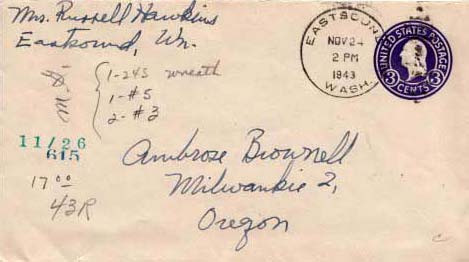 Mrs. Russell Hawkins
Eastsound, Wn.
EASTSOUND
NOV 24
2 PM
1943
WASH.
UNITED STATES POSTAGE
3 CENTS 3
1-24S wreath
1-#5
2-#3
11/26
615
17 00
43R
Ambrose Brownell
Milwaukie 2,
Oregon
c